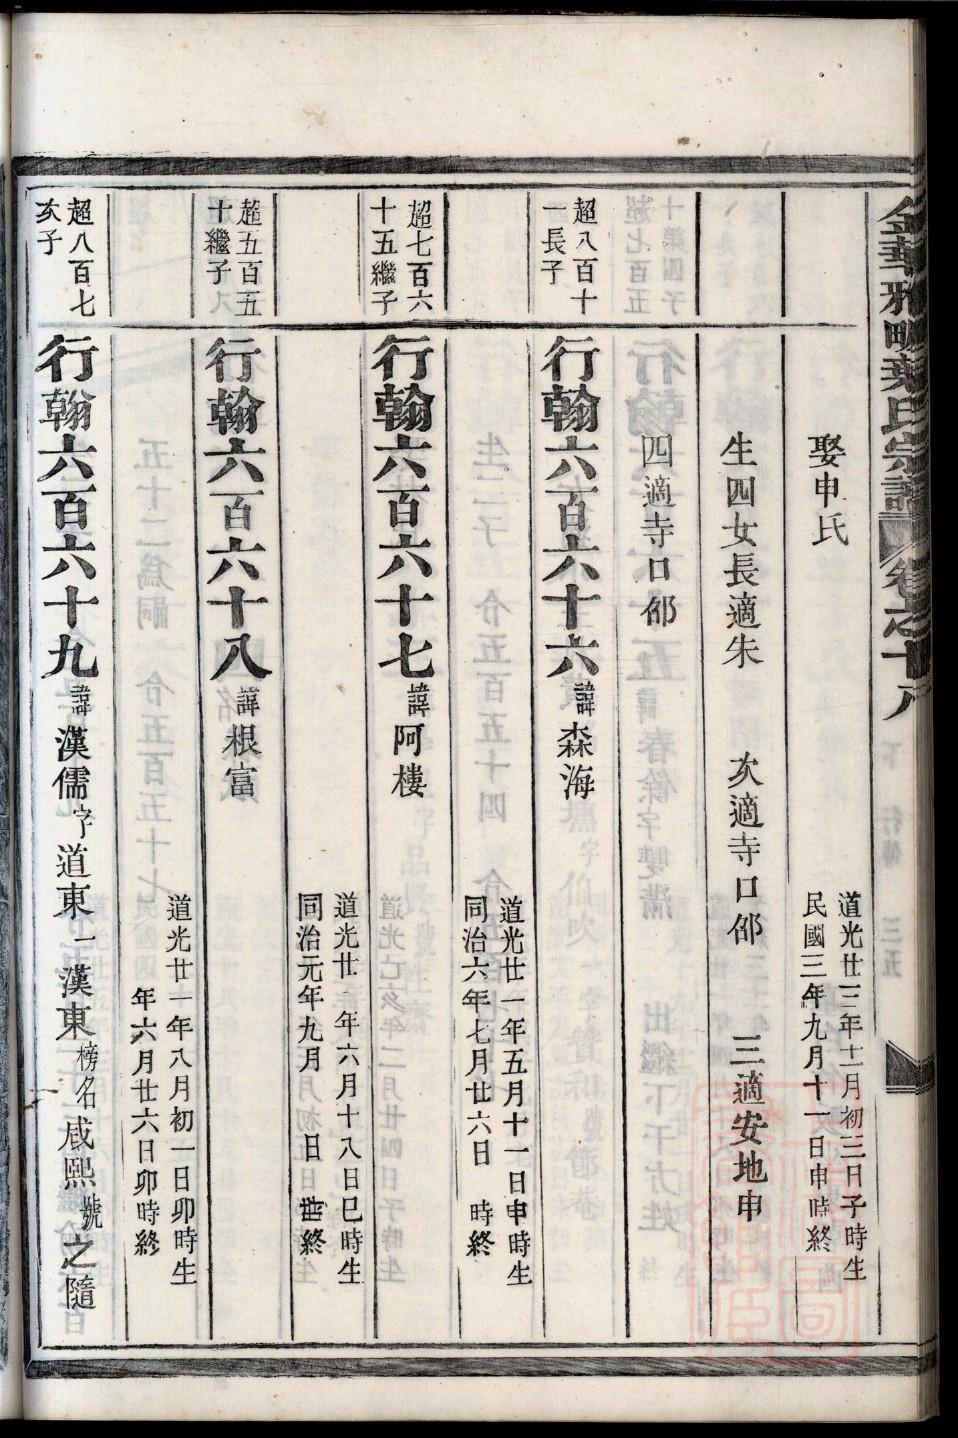 金華雅畈葉氏宗譜 卷之十八
娶申氏
道光廿三年十二月初三日子時生
民國三年九月十一日申時終
生四女長適朱 次適寺口邵 三適安地申
四適寺口邵
超八百十
一長子
行翰六百六十六諱森海
道光廿一年五月十一日申時生
同治六年七月廿六日 時終
超七百六
十五繼子
行翰六百六十七諱阿樓
道光廿一年六月十八日巳時生
同治元年九月 日 世終
超五百五
十繼子
行翰六百六十八諱根富
道光廿一年八月初一日卯時生
年六月廿六日卯時終
超八百七
次子
行翰六百六十九諱漢儒字道東一漢東榜名咸熙號之隨